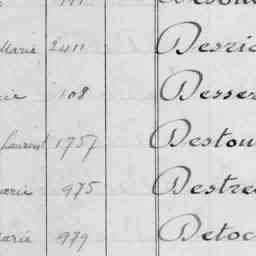 Marie 2411 Desrie
108 Desser
Laurent 1757 Destou
Marie 975 Destre
Marie 979 Detoc